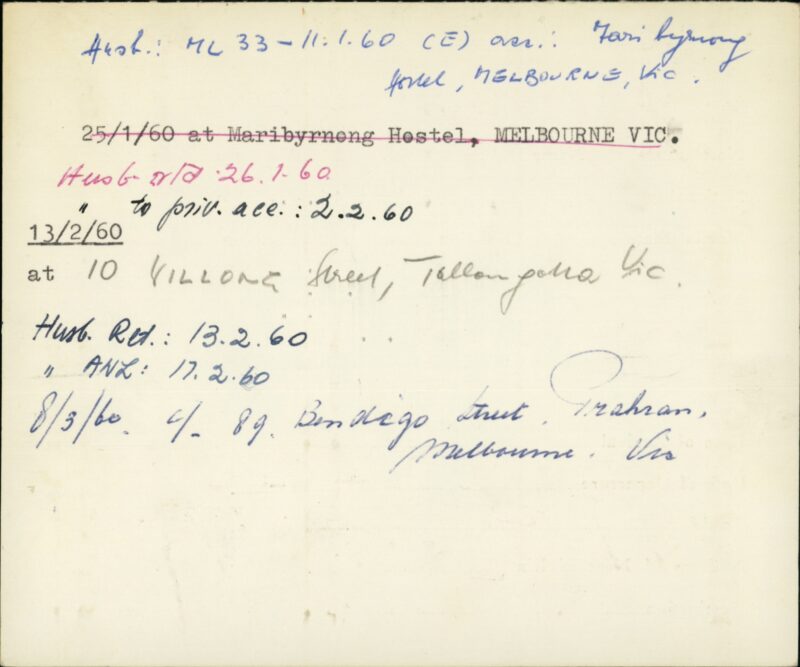 Husb.: ML 33 - 11.1.60 (E) acc.: Maribyrnong
Hostel, MELBOURNE, Vic.
25/1/60 at Maribyrnong Hostel, MELBOURNE VIC.
Husb 26.1.60
" to priv. acc.: 2.2.60
13/2/60
at 10 Street, Tallangatta Vic.
Husb. Ret.: 13.2.60
" ANL: 17.2.60
8/3/60. c/- 89. Bendigo Street. Prahran.
Melbourne. Vic